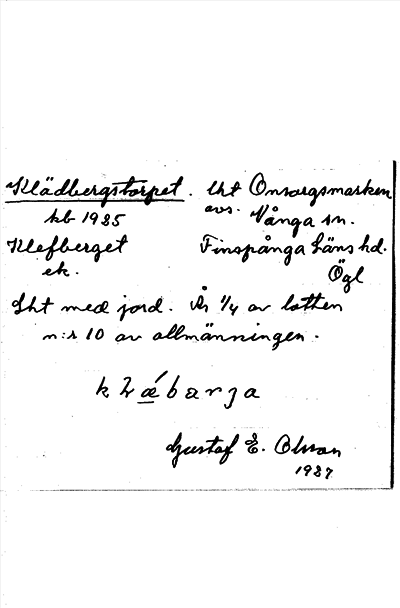 Klädbergstorpet. lht Onsorgsmarken
kb 1935 avs. Vånga sn.
Klefberget Finspånga Läns hd.
ek. Ögl
Lht med jord. Är 1/4 av lotten
n:r 10 av allmänningen.
Gustaf E. Olsson
1937